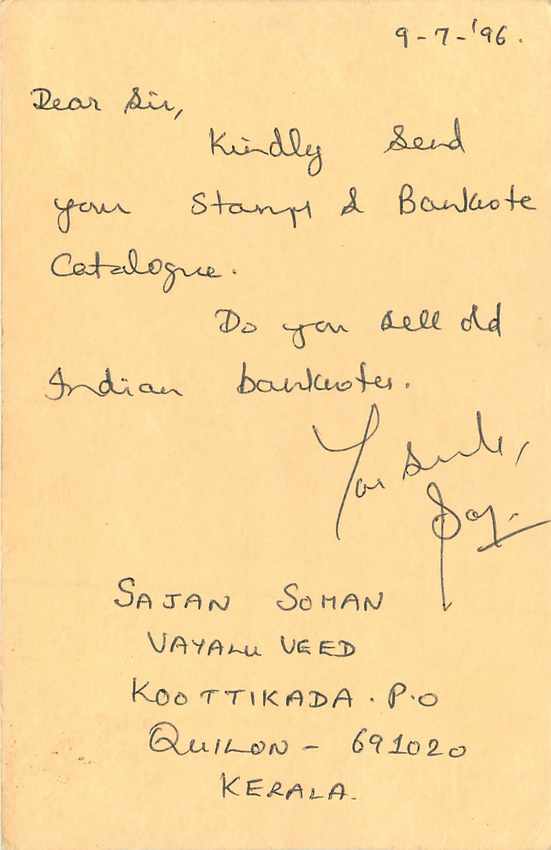 9-7-'96.
Dear Sir,
Kindly Send
your Stamps & Banknote
Catalogue.
Do you sell old
Indian banknotes.
SAJAN SOMAN
VAYALU VEED
KOOTTIKADA. P.O
QUILON - 691020
KERALA.